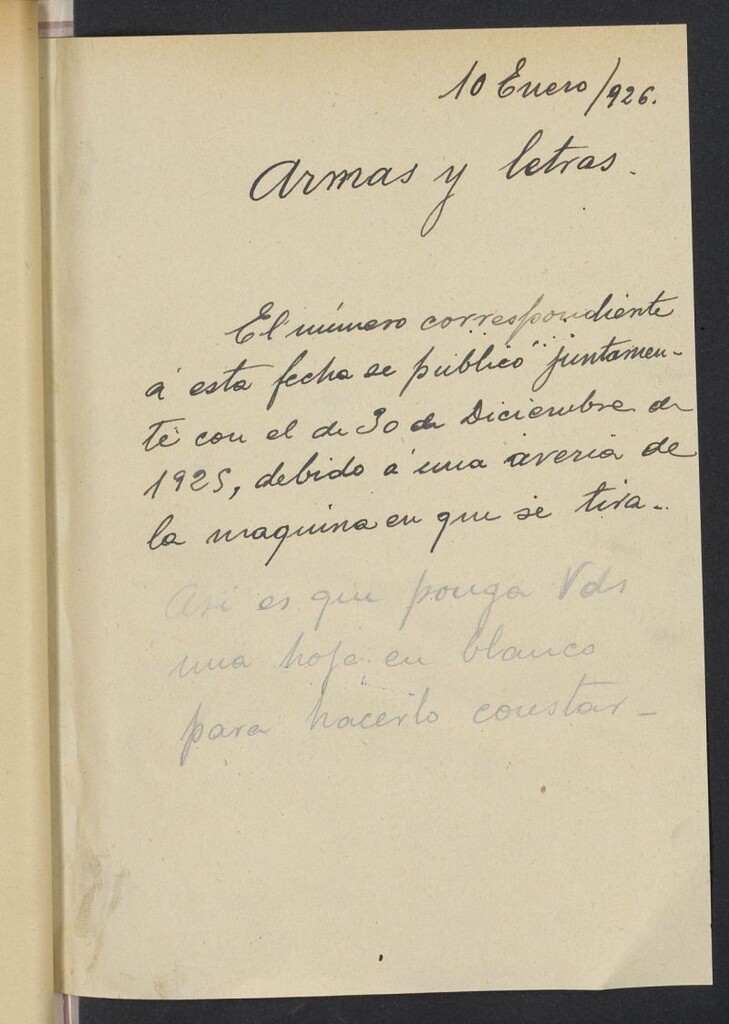 10 Enero/926.
Armas y letras.
El número correspondiente
á esta fecha se publicó juntamen-
te con el de 30 de Diciembre de
1925, debido á una avería de
la maquina en que se tira..
Asi es que ponga Vds
una hoja en blanco
para hacerlo constar-